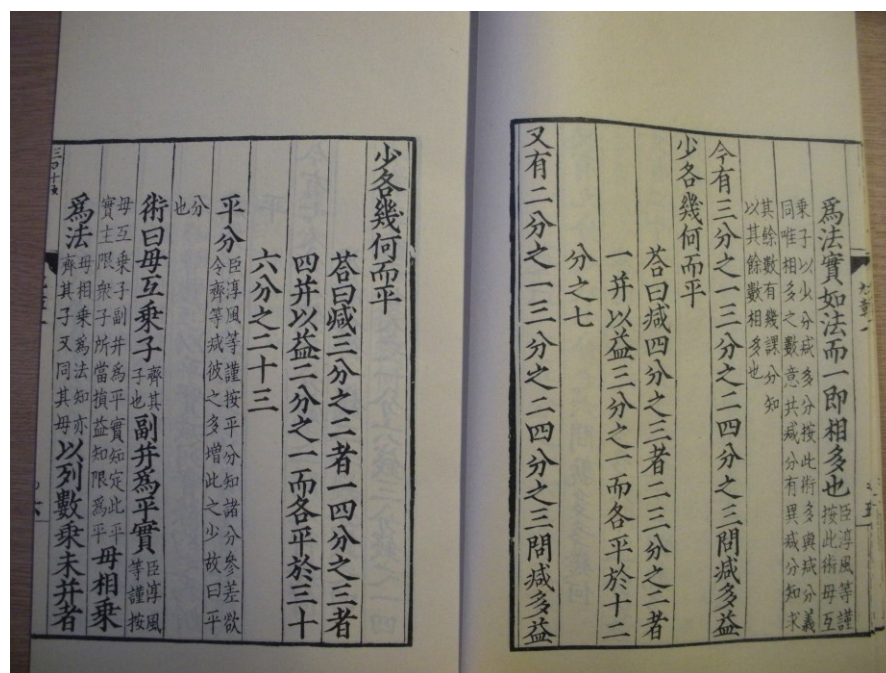 爲法實如法而一卽相多也臣淳風等謹
按此術母互
乘子以少分減多分按此術多與減分義
同唯相多之數意共減分有異減分知求
其餘數有幾課分知
以其餘數相多也
今有三分之一三分之二四分之三問減多益
少各幾何而平
荅曰減四分之三者二三分之二者
一并以益三分之一而各平於十二
分之七
又有二分之一三分之二四分之三問減多益
少各幾何而平
荅曰減三分之二者一四分之三者
四并以益二分之一而各平於三十
六分之二十三
平分臣淳風等謹按平分知諸分參差欲
令齊等減彼之多增此之少故曰平
分
也
術曰母互乘子齊其
子也
副并爲平實臣淳風
等謹按
母互乘子副并爲平實知定此平
實主限衆子所當損益知限爲平
母相乘
爲法母相乘爲法知亦
齊其子又同其母
以列數乘未并者